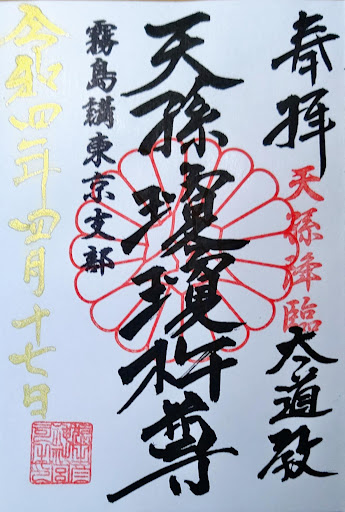 奉拝
天孫降臨
大道教
天孫瓊瓊杵尊
霧島講東京支部
令和四年四月十七日